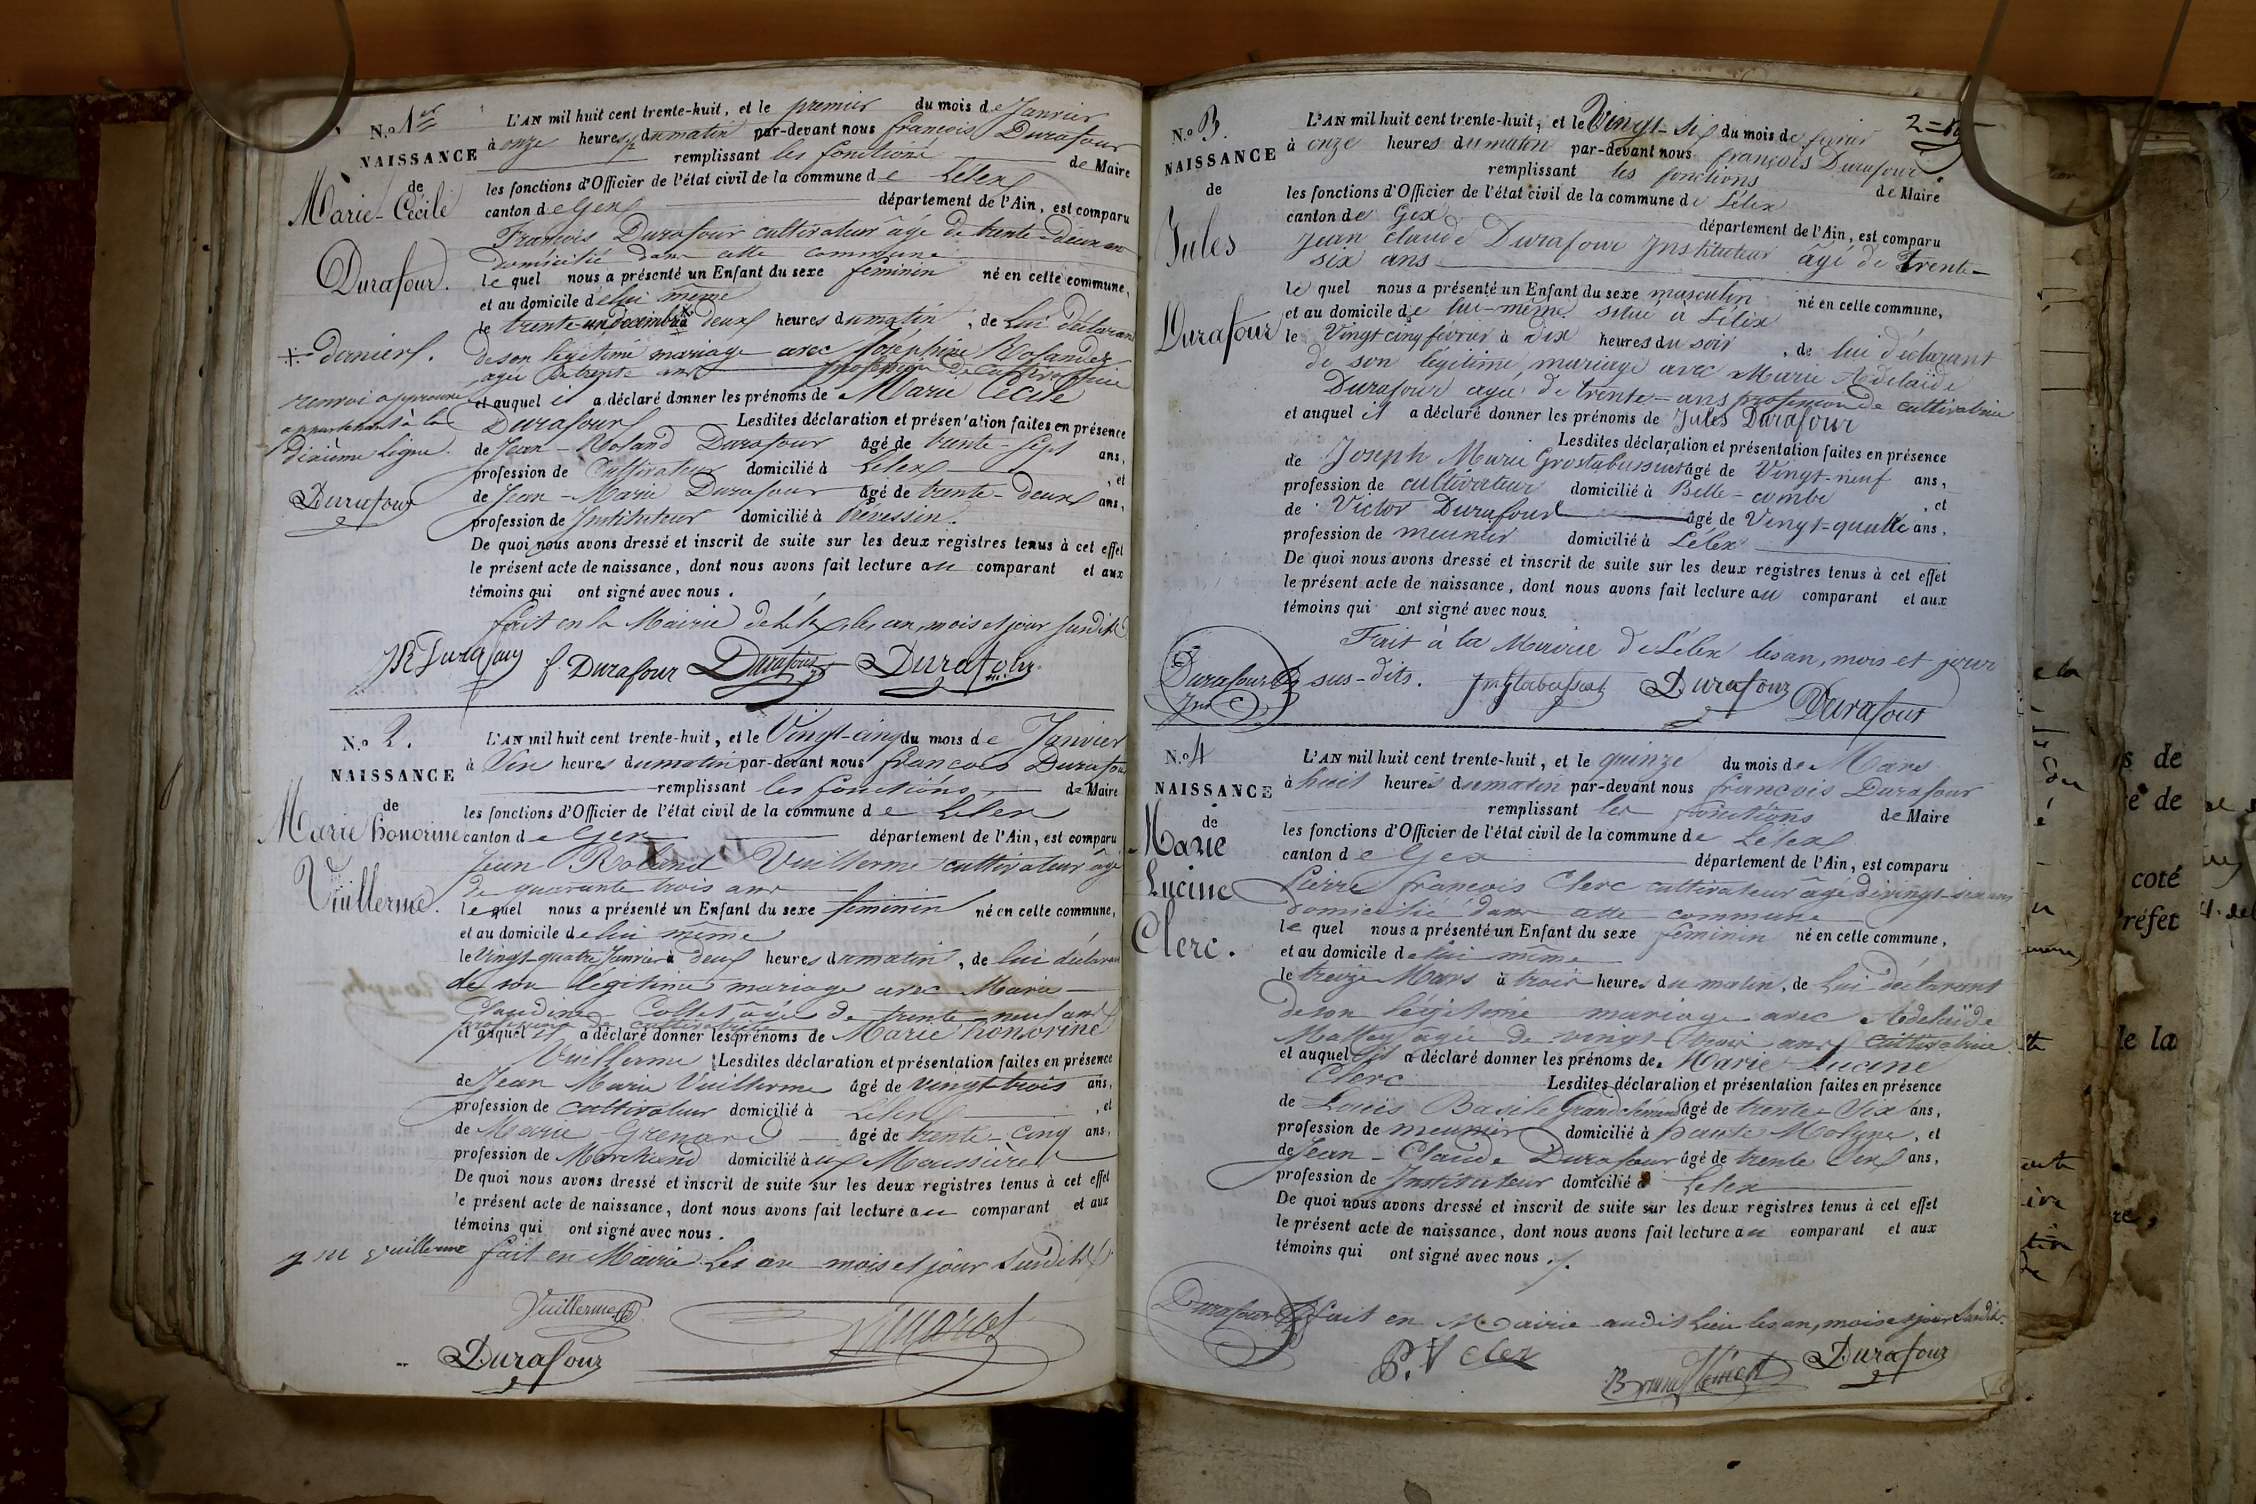 N.º 1er
NAISSANCE
de
Marie-Cécile
Durafour.
+ derniers.
renvoi approuvé
appartenant à la
dixième ligne.
Durafour
L'AN mil huit cent trente-huit, et le premier du mois de Janvier
à onze heures du matin par-devant nous françois Durafour
remplissant les fonctions de Maire
les fonctions d'Officier de l'état civil de la commune de Lélex
canton de Gex département de l'Ain, est comparu
François Durafour cultivateur âgé de trente-deux ans
domicilié dans cette commune
le quel nous a présenté un Enfant du sexe féminin né en cette commune,
et au domicile de lui même
le trente-un décembre + à deux heures du matin, de lui déclarant
de son légitime mariage avec Josephine Rolandez
agée de trente ans profession de Cultivatrice
et auquel il a déclaré donner les prénoms de Marie Cécile
Durafour Lesdites déclaration et présentation faites en présence
de Jean-Roland Durafour âgé de trente-sept ans,
profession de Cultivateur domicilié à Lélex, et
de Jean-Marie Durafour âgé de trente-deux ans,
profession de Instituteur domicilié à Prévessin.
De quoi nous avons dressé et inscrit de suite sur les deux registres tenus à cet effet
le présent acte de naissance, dont nous avons fait lecture au comparant et aux
témoins qui ont signé avec nous.
fait en la Mairie de Lélex, les an, mois et jour susdits
JR Durafour f. Durafour Durafour Durafour
N.º 2.
NAISSANCE
de
Marie honorine
Vuillerme.
L'AN mil huit cent trente-huit, et le Vingt-cinq du mois de Janvier
à Dix heures du matin par-devant nous françois Durafour
remplissant les fonctions de Maire
les fonctions d'Officier de l'état civil de la commune de Lélex
canton de Gex département de l'Ain, est comparu
Jean Roland Vuillerme cultivateur âgé
de quarante trois ans
le quel nous a présenté un Enfant du sexe féminin né en cette commune,
et au domicile de lui même
le Vingt quatre Janvier à deux heures du matin, de lui déclarant
de son légitime mariage avec Marie
Claudine Collet âgée de trente neuf ans
profession de cultivatrice
et auquel il a déclaré donner les prénoms de Marie honorine
Vuillerme Lesdites déclaration et présentation faites en présence
de Jean Marie Vuillerme âgé de vingt-trois ans,
profession de cultivateur domicilié à Lélex, et
de Marie Grenard âgé de trente-cinq ans,
profession de Marchand domicilié aux Moussières
De quoi nous avons dressé et inscrit de suite sur les deux registres tenus à cet effet
le présent acte de naissance, dont nous avons fait lecture au comparant et aux
témoins qui ont signé avec nous.
J M Vuillerme fait en Mairie les an mois et jour susdits
Vuillerme
Durafour
2
N.º 3.
NAISSANCE
de
Jules
Durafour
L'AN mil huit cent trente-huit, et le Vingt-six du mois de février
à onze heures du matin par-devant nous françois Durafour
remplissant les fonctions de Maire
les fonctions d'Officier de l'état civil de la commune de Lélex
canton de Gex département de l'Ain, est comparu
Jean Claude Durafour Instituteur âgé de trente-
six ans
le quel nous a présenté un Enfant du sexe masculin né en cette commune,
et au domicile de lui-même situé à Lélex
le Vingt cinq février à Dix heures du soir, de lui déclarant
de son légitime mariage avec Marie Adelaïde
Durafour agée de trente-ans profession de cultivatrice
et auquel il a déclaré donner les prénoms de Jules Durafour
Lesdites déclaration et présentation faites en présence
de Joseph Marie Grostabussiat âgé de Vingt-neuf ans,
profession de cultivateur domicilié à Belle-combe, et
de Victor Durafour âgé de Vingt-quatre ans,
profession de meunier domicilié à Lélex
De quoi nous avons dressé et inscrit de suite sur les deux registres tenus à cet effet
le présent acte de naissance, dont nous avons fait lecture au comparant et aux
témoins qui ont signé avec nous.
Fait à la Mairie de Lélex les an, mois et jour
sus-dits.
Durafour Durafour Durafour
N.º 4
NAISSANCE
de
Marie
Lucine
Clerc.
L'AN mil huit cent trente-huit, et le quinze du mois de Mars
à huit heures du matin par-devant nous françois Durafour
remplissant les fonctions de Maire
les fonctions d'Officier de l'état civil de la commune de Lélex
canton de Gex département de l'Ain, est comparu
Pierre françois Clerc cultivateur âgé de vingt-six ans
domicilié dans cette commune
le quel nous a présenté un Enfant du sexe féminin né en cette commune,
et au domicile de lui même
le treize Mars à trois heures du matin, de lui déclarant
de son légitime mariage avec Adelaïde
Mattey agée de vingt-trois ans cultivatrice
et auquel il a déclaré donner les prénoms de Marie Lucine
Clerc Lesdites déclaration et présentation faites en présence
de Louis Basile Grandclément âgé de trente-six ans,
profession de meunier domicilié à haute Molune, et
de Jean-Claude Durafour âgé de trente six ans,
profession de Instituteur domicilié à Lélex
De quoi nous avons dressé et inscrit de suite sur les deux registres tenus à cet effet
le présent acte de naissance, dont nous avons fait lecture au comparant et aux
témoins qui ont signé avec nous.
fait en Mairie audit Lieu les an, mois et jour susdits.
Durafour P. f clerc Durafour
s de
é de
coté
réfet
le la